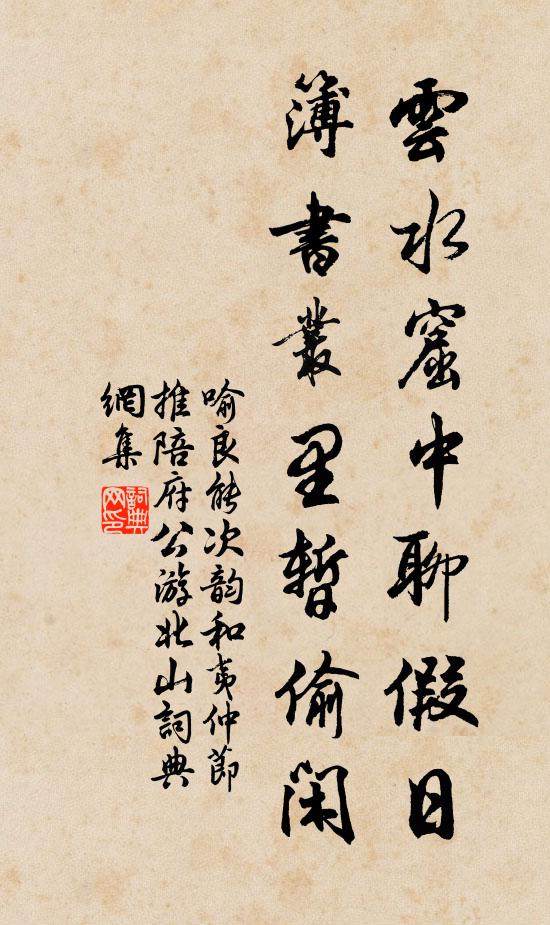 雲水窟中聊假日
簿書叢里暫偷閑
喻良能次韵和夷仲節
推陪府公游北山詞典
網集
詞典
网印